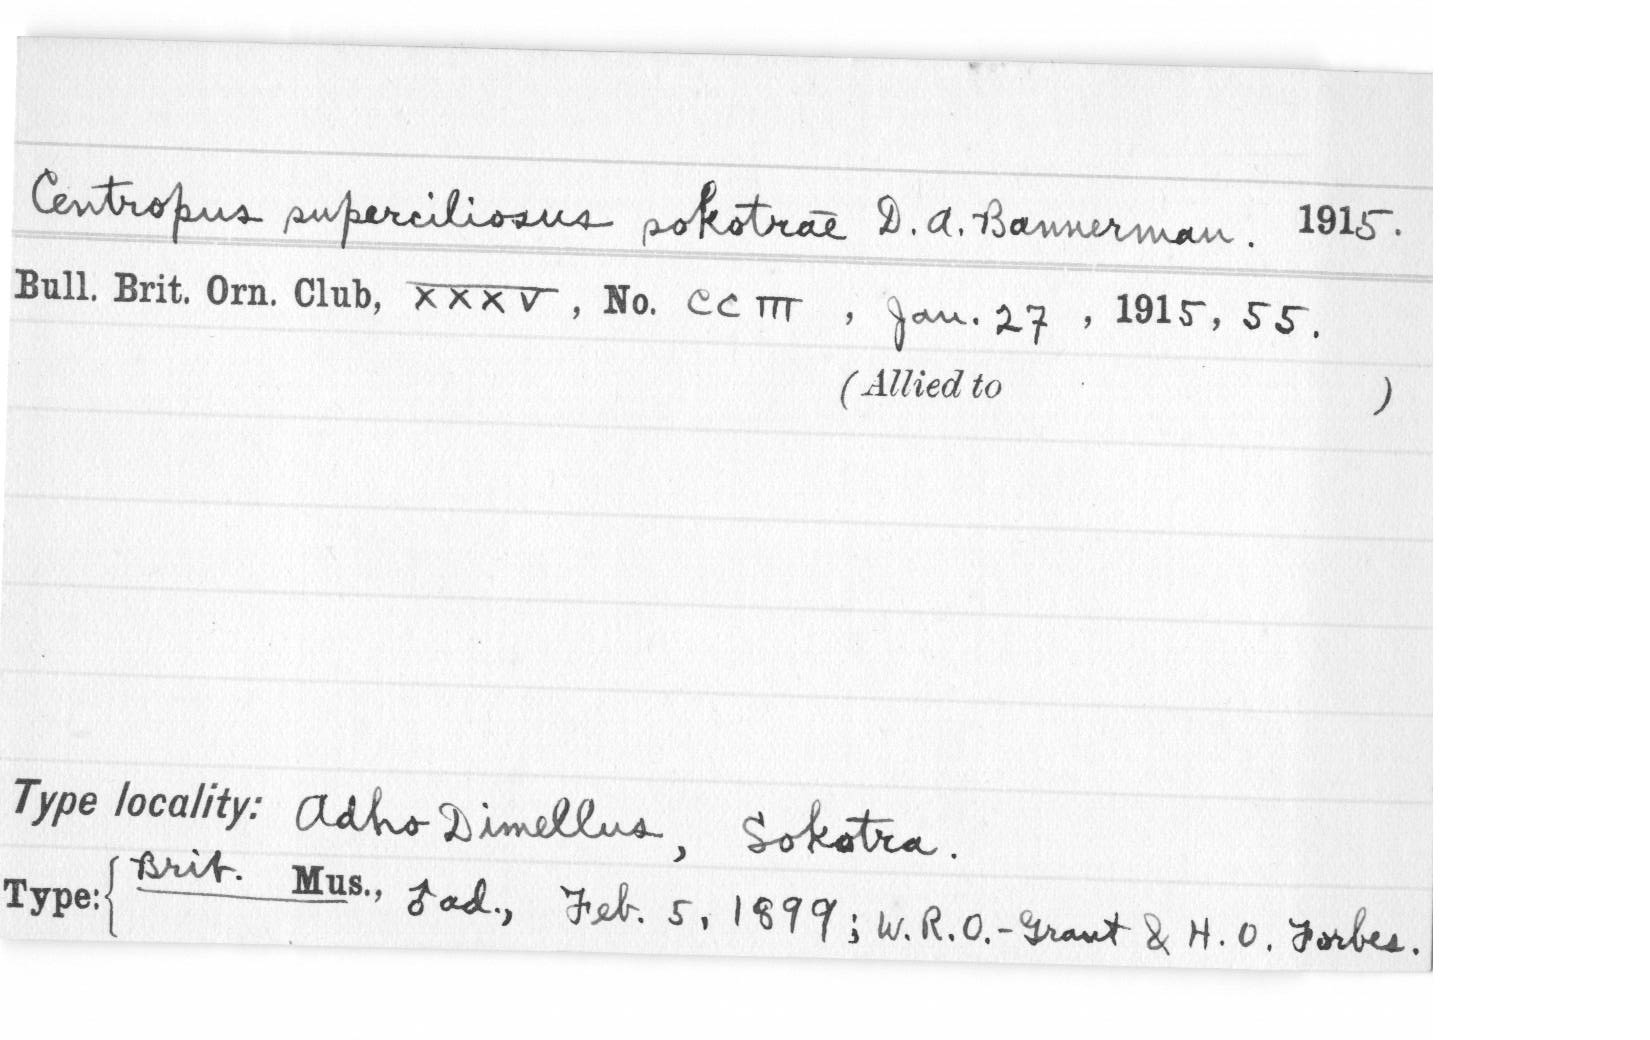 Centropus superciliosus sokotrae D. A. Bannerman. 1915.
Bull. Brit. Orn. Club, XXXV, No. CCIII, Jan. 27, 1915, 55.
(Allied to )
Type locality: Adho Dimellus, Sokotra.
Type: { Brit. Mus., ♂ ad., Feb. 5, 1899; W. R. O.-Grant & H. O. Forbes.